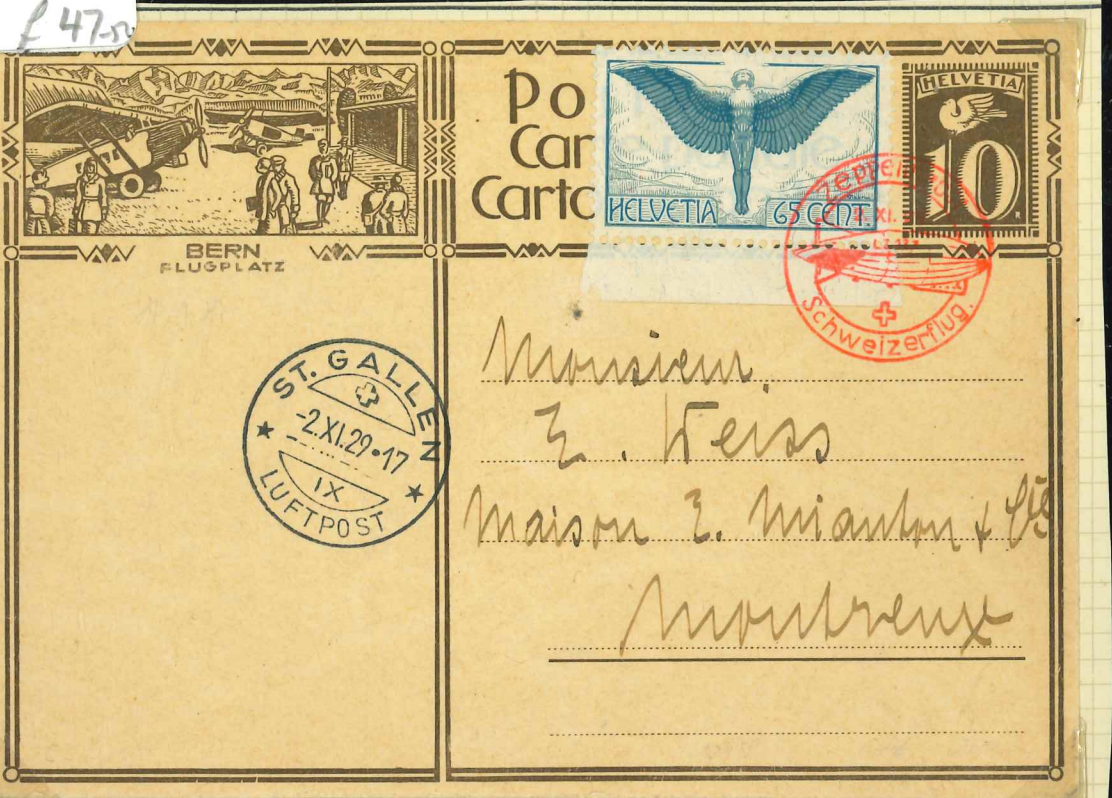 f 47-50
BERN
FLUGPLATZ
Po
Car
Carto
HELVETIA 65 CENT.
HELVETIA
10
XI.
Schweizerflug.
ST. GALLEN
-2.XI.29•17
IX
LUFTPOST
Monsieur.
E. Weiss
Maison E. Mianton & Cie
Montreux